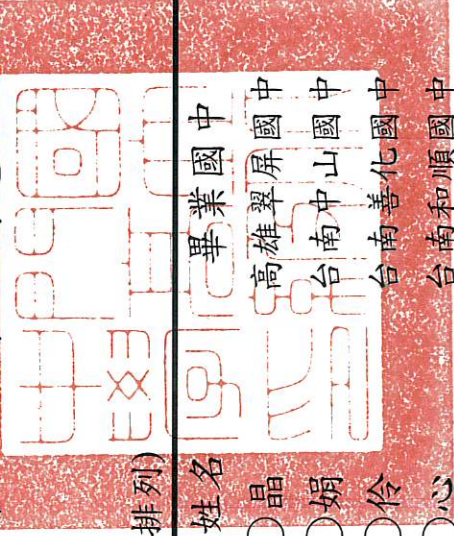 排列)
姓名 畢業國中
○晶 高雄翠屏國中
○娟 台南中山國中
○伶 台南善化國中
○心 台南和順國中